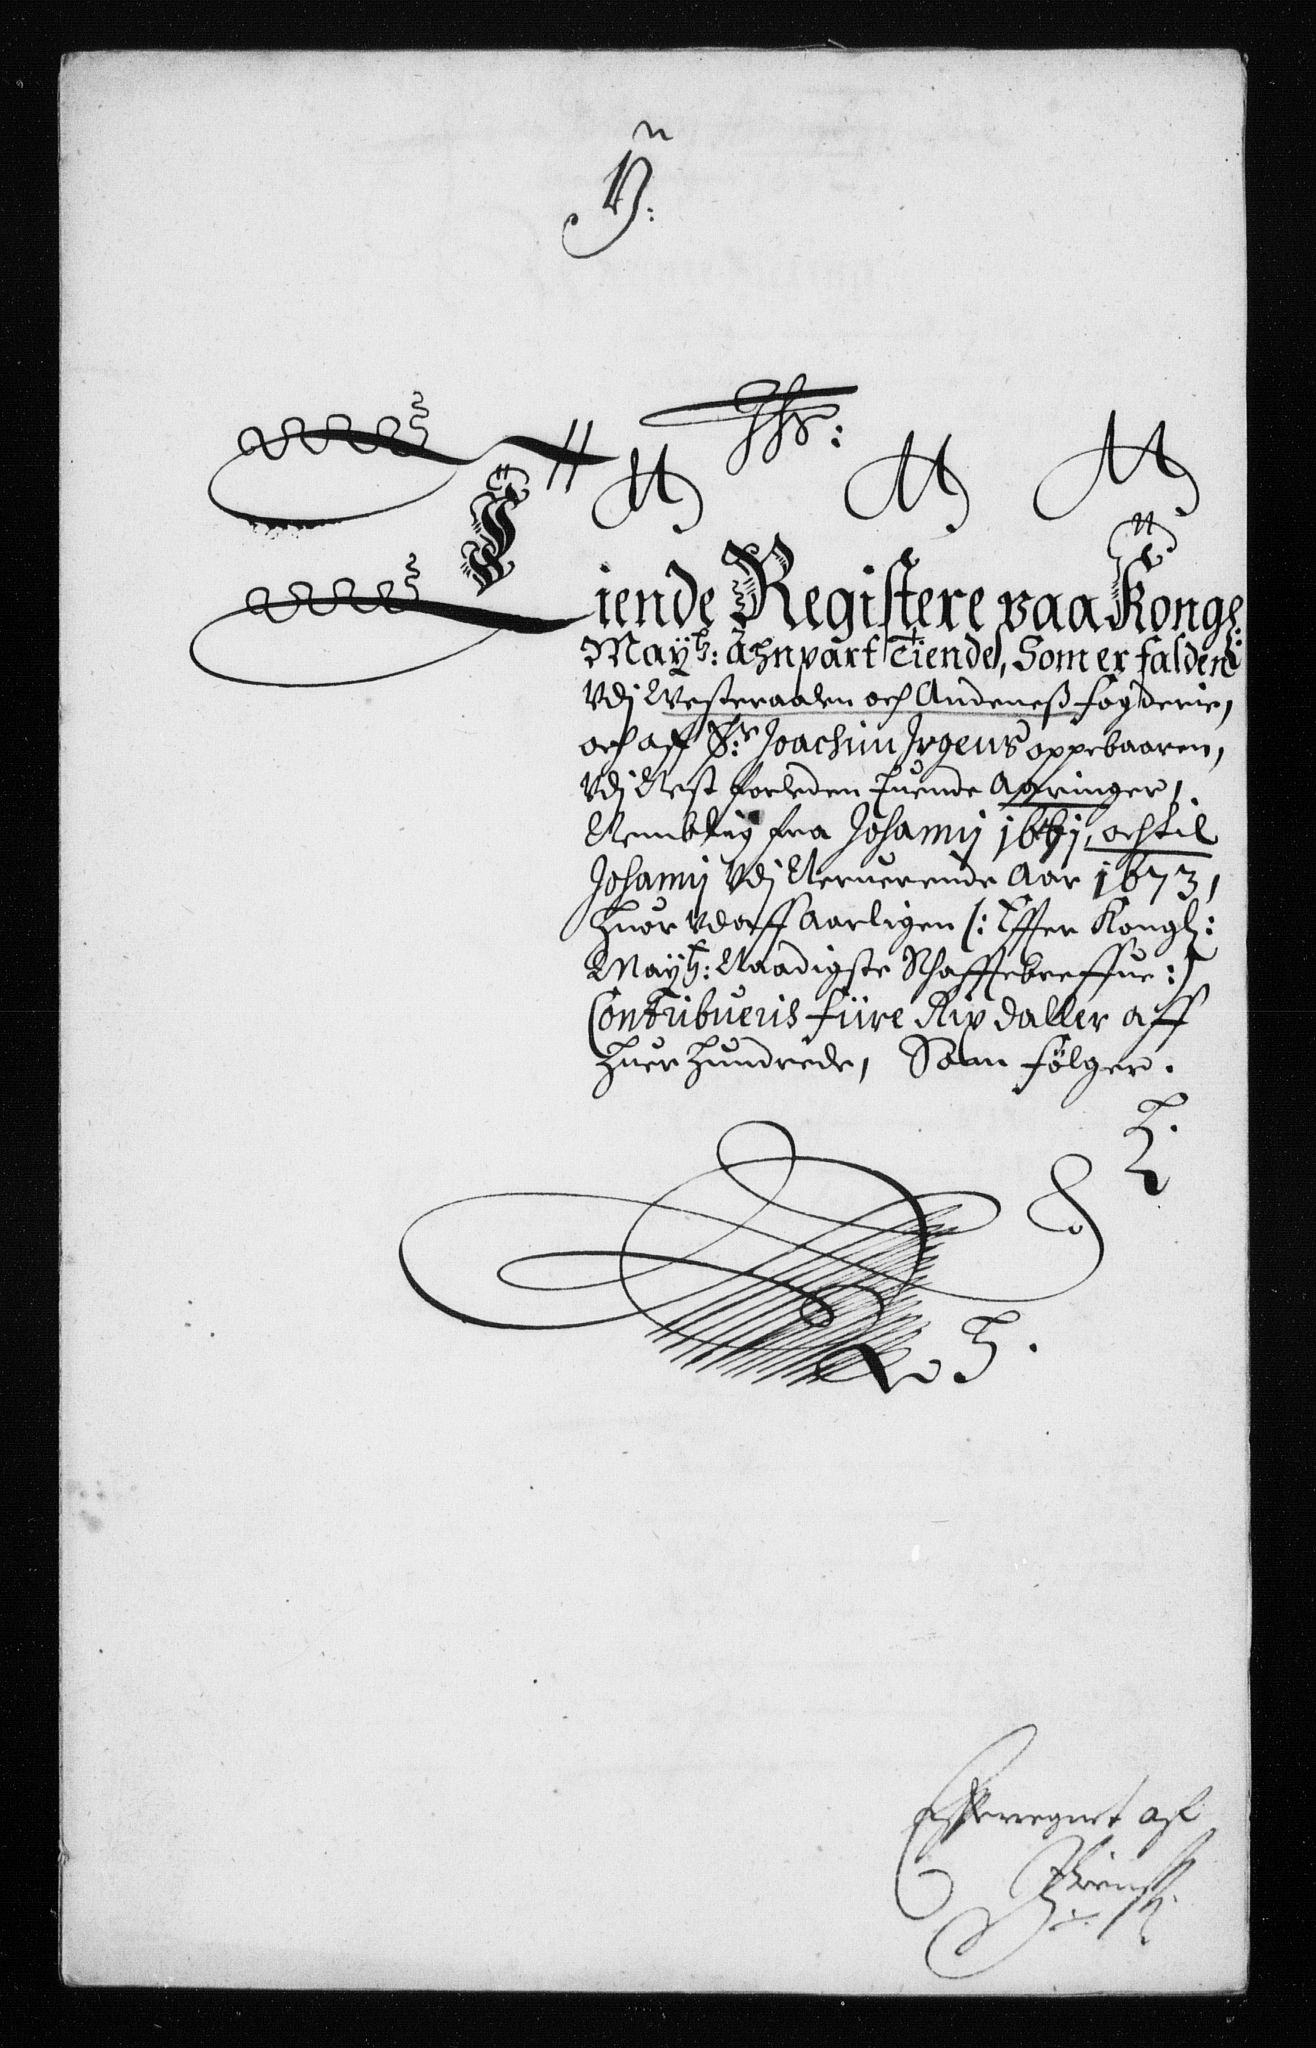 N:
Tiende Registere paa Kongl:
Mayt: Anpart Tiende, Som er falden
Vdj Westeraalen och Andeneß fogderie,
och aff Sr: Joachim Irgens oppebaaren,
Vdj Nest forleden tuende Aaringer,
Nemblig fra Johannj 1671, och til
Johannj Vdj Neruerende Aar 1673,
huor vdaff Aarligen /: Effter Kongl:
Mayt: Naadigste Schattebreffue :/
Contribueris fiire Rixdaller aff
huer hundrede, Som følger.
Effterregnet aff